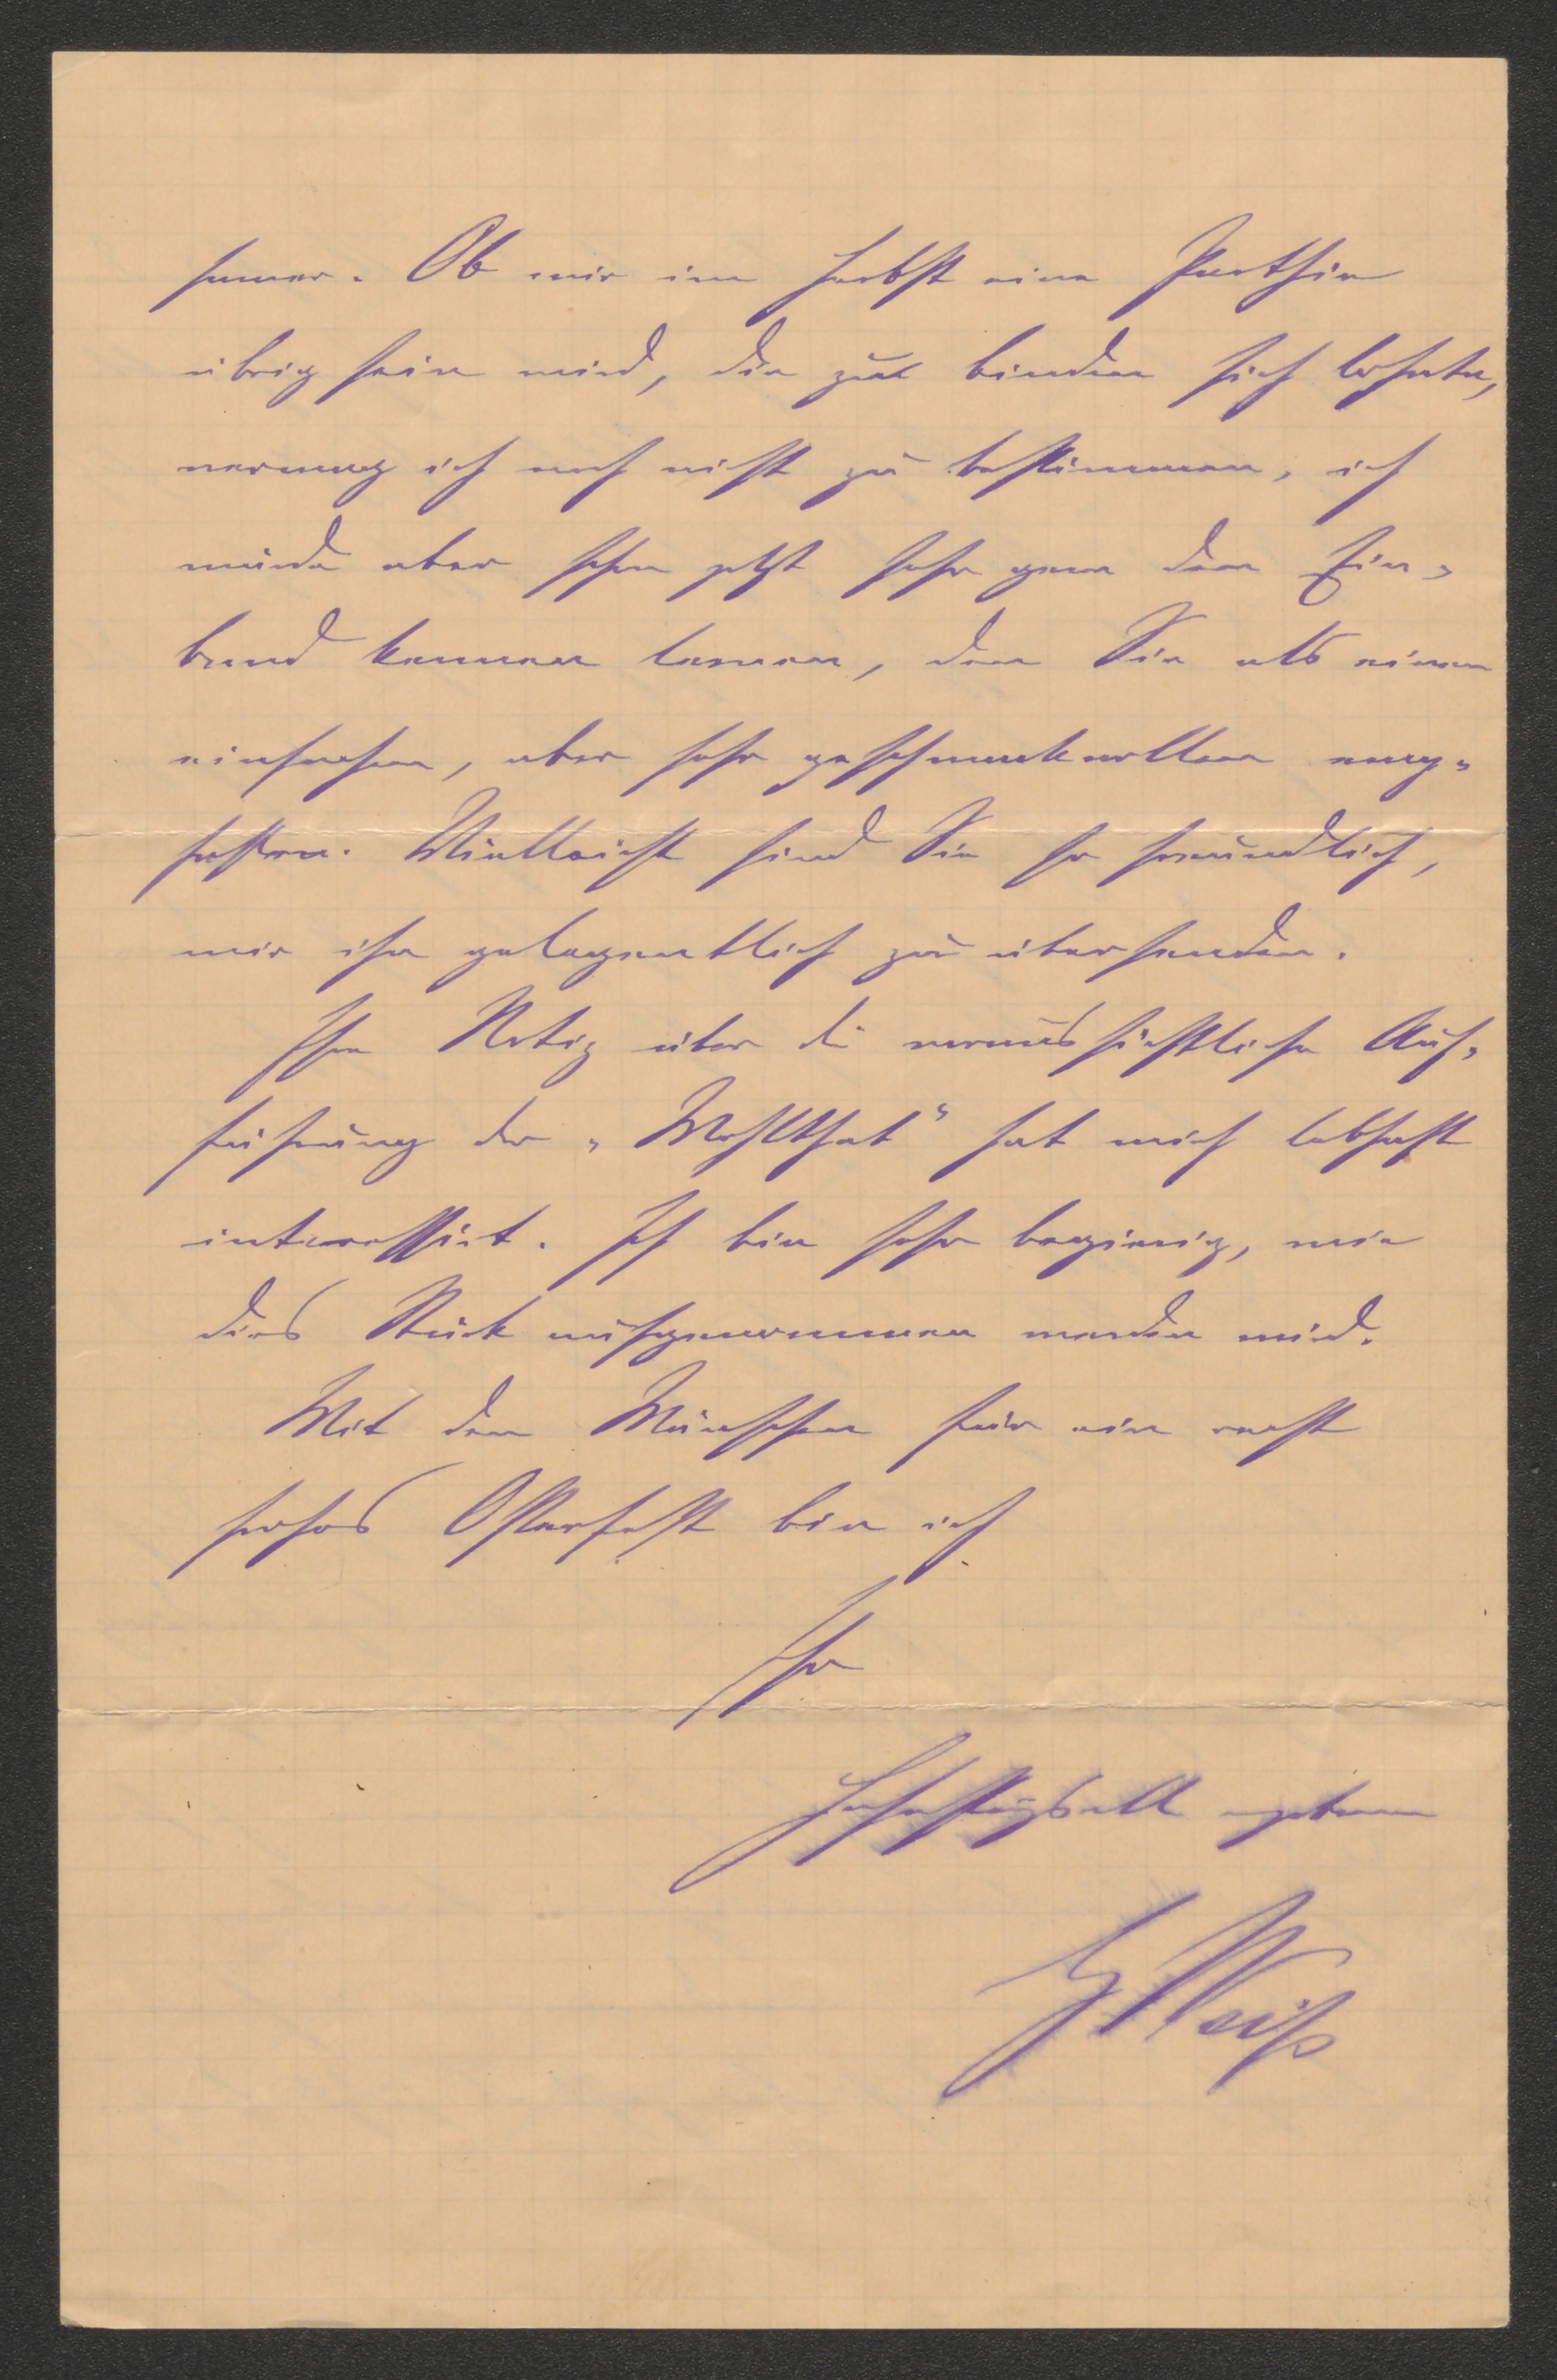 ferner. Ob mir im Herbst eine Parthie
übrig sein wird, die zu binden sich lohnte,
vermag ich noch nicht zu bestimmen, ich
würde aber schon jetzt sehr gern den Ein-
band kennen lernen, den Sie als einen
einfachen, aber sehr geschmackvollen
Vielleicht sind Sie so freundlich,
mir ihn gelegentlich zu übersenden.
Ihre Notiz über die voraussichtliche Auf-
führung der „Wohlthat“ hat mich lebhaft
interessirt. Ich bin sehr begierig, wie
dies Stück aufgenommen werden wird.
Mit den Wünschen für ein recht
frohes Osterfest bin ich
Ihr
hochachtungsvoll ergebener
Weiß